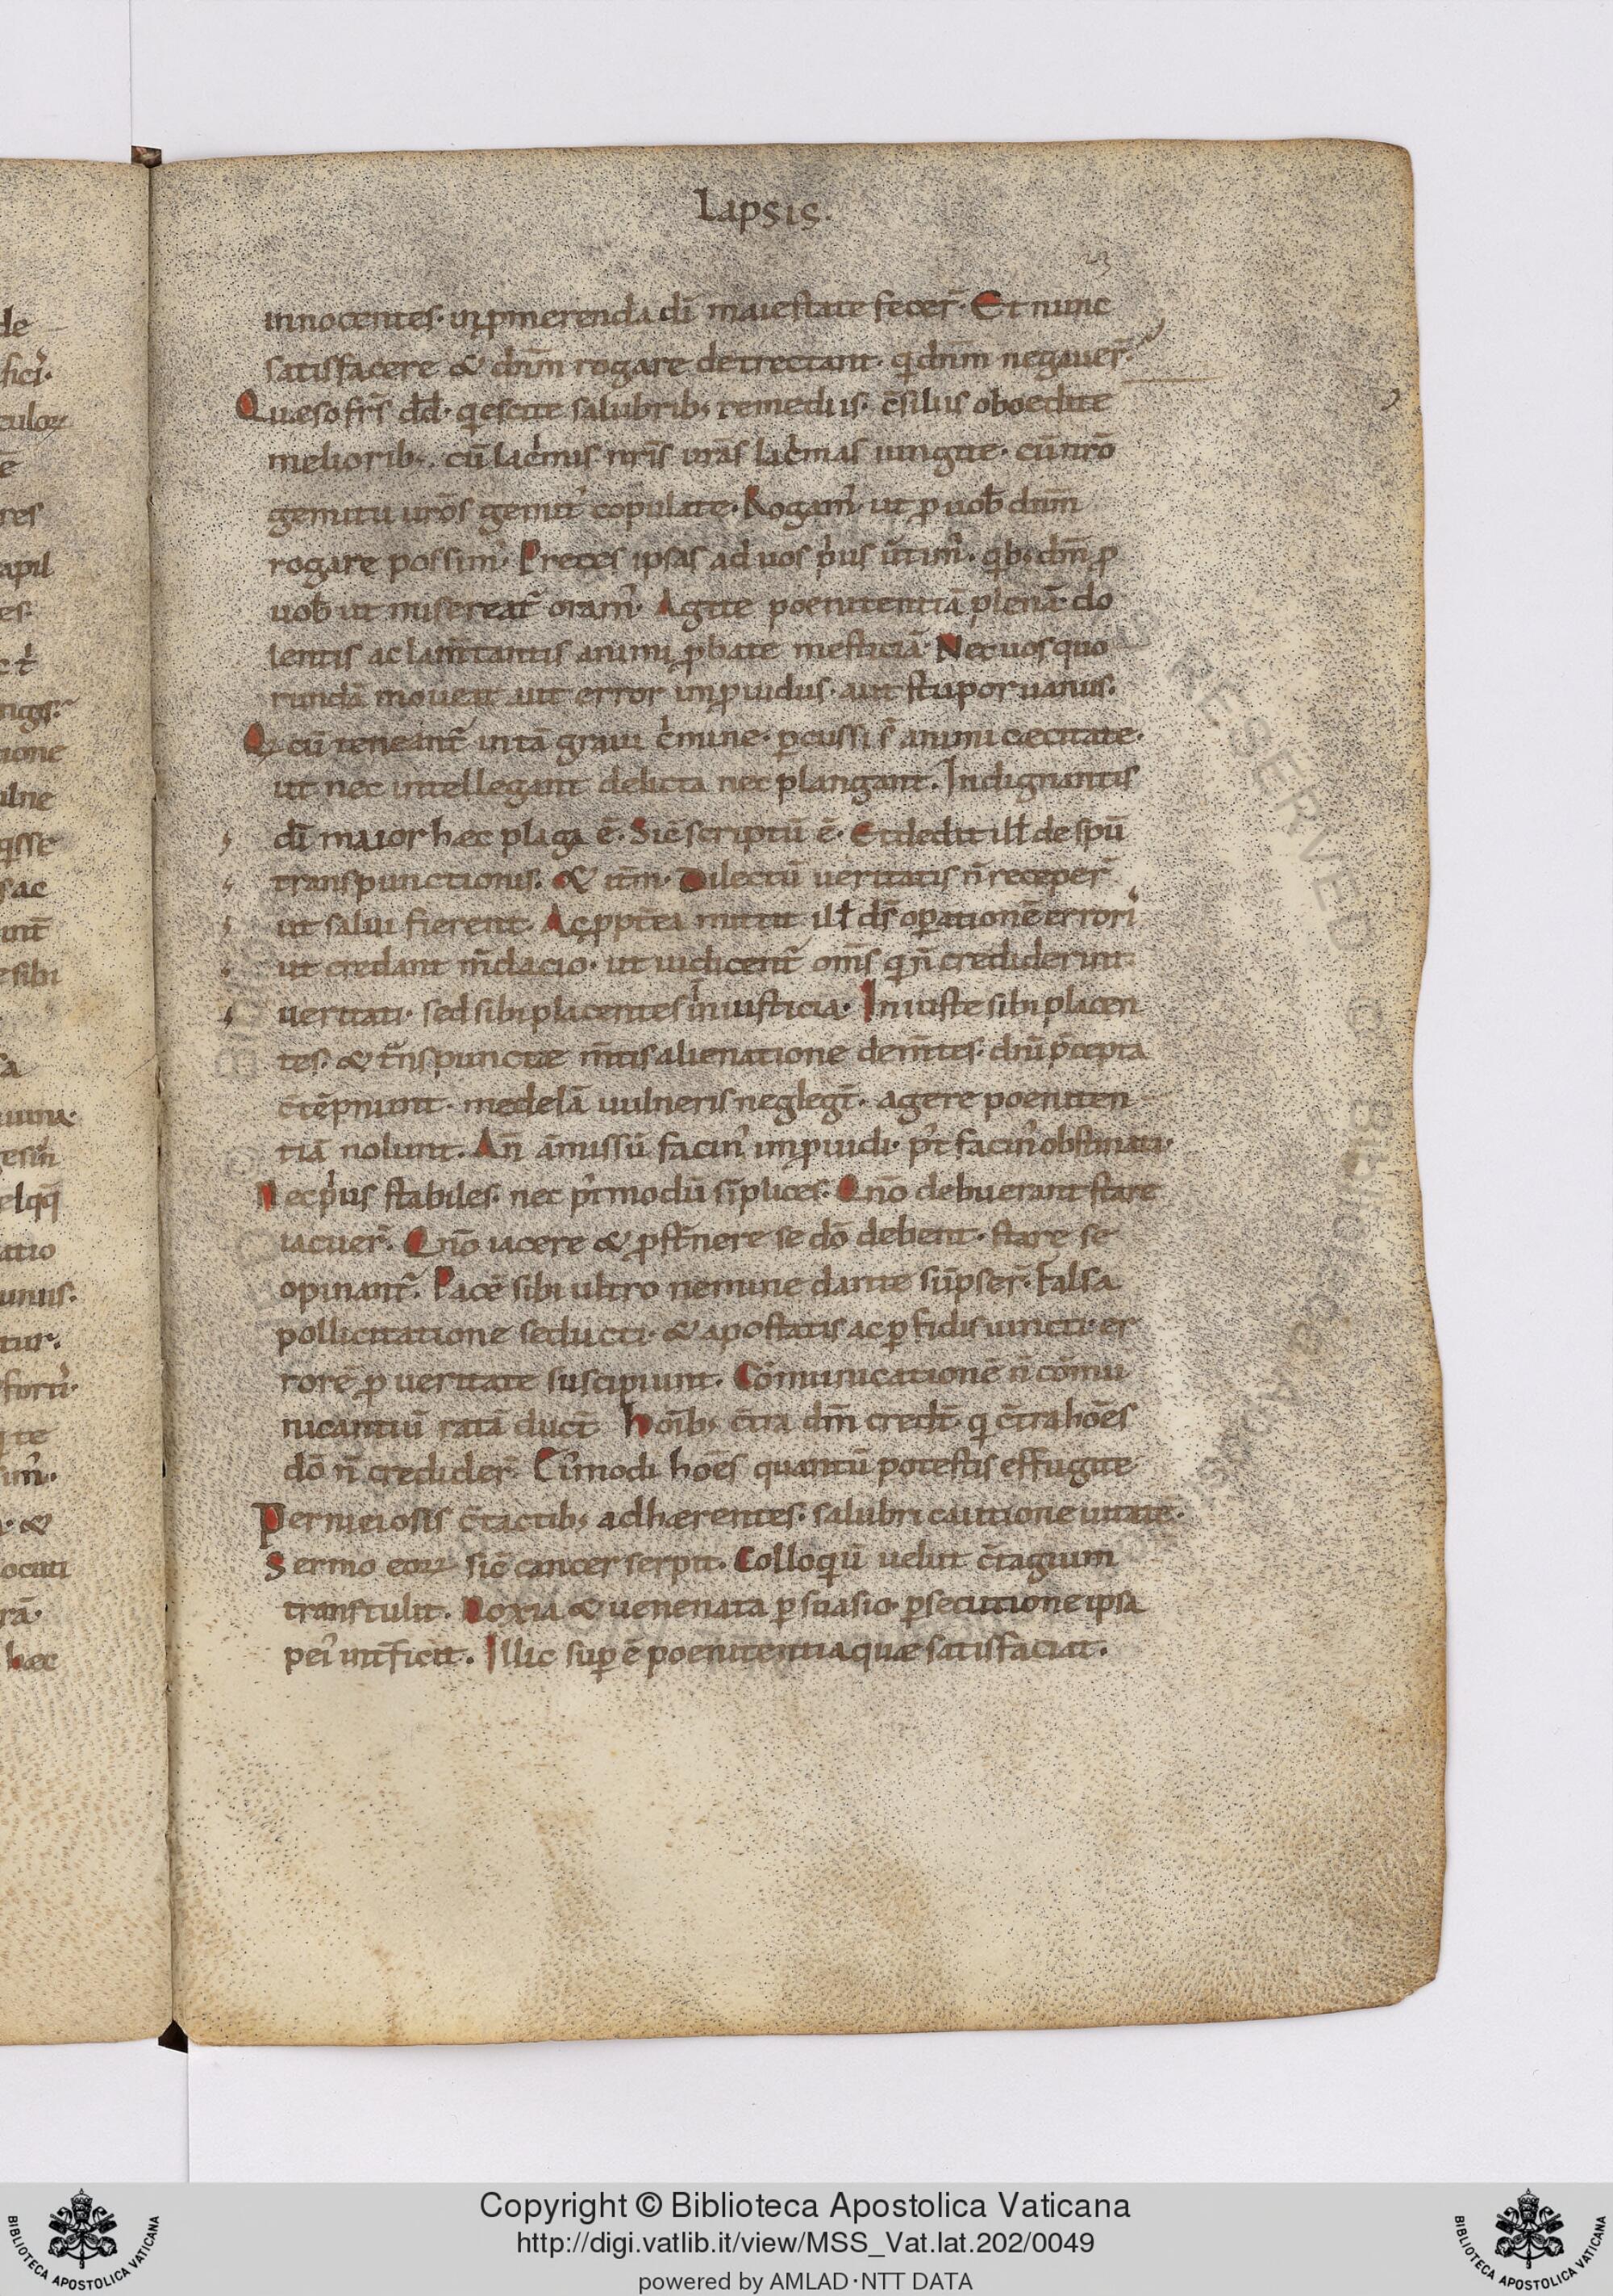 Lapsis.
23
innocentes· inꝓmerenda dī maiestate fecer̄· Et nunc
satisfacere & dn̄m rogare detrectant· qi dnm̄ negauer̄·
Quæso frs̄ dd̄· qiescite salubrib; remediis· c̄siliis oboedite
meliorib;. cū lac̓mis nr̄is ur̄as lac̓mas iungite· cū nr̄o
gemitu ur̄os gemit᾽ copulate· Rogam᾽ ut ꝓ uob̄ dnm̄
rogare possim᾽· Preces ipsas ad uos p̓us ūtim᾽· qib; dm̄ ꝓ
uob̄ ut misereat᷑ oram᾽· Agite poenitentiā plenā· do
lentis ac lam̄tantis animi ꝓbate mesticiā· Nec uos quo
rundā moueat aut error imꝓuidus· aut stupor uanus·
Qi cū teneant᷑ in tā graui c̓mine· ꝑcussi s̄ animi cæcitate·
ut nec intellegant delicta nec plangant. Indignantis
dī maior hæc plaga ē· Sic̄ scriptū ē· Et dedit ill̄ de᷒ spū
transpunctionis· & itm̄· Dilectū ueritatis n̄ receper̄
ut salui fierent· Ac ꝓpt̄ea mittit ill̄ ds̄ oꝑationē errori᾽
ut credant m̄dacio· ut iudicent᷑ oms̄ qi n̄ crediderint
ueritati· sed sibi placentes in iniusticia· Iniuste sibi placen
tes· & t̄nspunctæ m̄tis alienatione dem̄tes· dnī p̄cepta
c̄tēpnunt· medelā uulneris neglegt̄· agere poeniten
tiā nolunt. An̄ āmissū facin᾽ imꝓuidi· p᾽t facin᾽ obstinati·
Nec p̓us stabiles· nec p᾽tmodū sīplices· Qn̄o debuerant stare
iacuer̄· Qn̄o iacere & ꝓst̄nere se dō debent· stare se
opinant᷑. Pacē sibi ultro nemine dante sūpser̄· Falsa
pollicitatione seducti· & apostatis ac ꝑfidis uincti· er
rorē ꝓ ueritate suscipiunt· Cōmunicationē n̄ cōmu
nicantiū ratā duct̄ hoīb; c̄tra dm̄ credt̄· qi c̄tra hoēs
dō n̄ credider̄· Ei᾽modi hoēs quantū potestis effugite·
Perniciosis c̄tactib; adhærentes· salubri cautione uitate·
Sermo eoꝝ sic̄ cancer serpit. Colloqiū uelut c̄tagium
transtulit· Noxia & uenenata ꝑsuasio· ꝑsecutione ipsa
pei᾽ int̄ficit. Illic suꝑ ē poenitentia quæ satisfaciat.
Copyright © Biblioteca Apostolica Vaticana
http://digi.vatlib.it/view/MSS_Vat.lat.202/0049
powered by AMLAD·NTT DATA